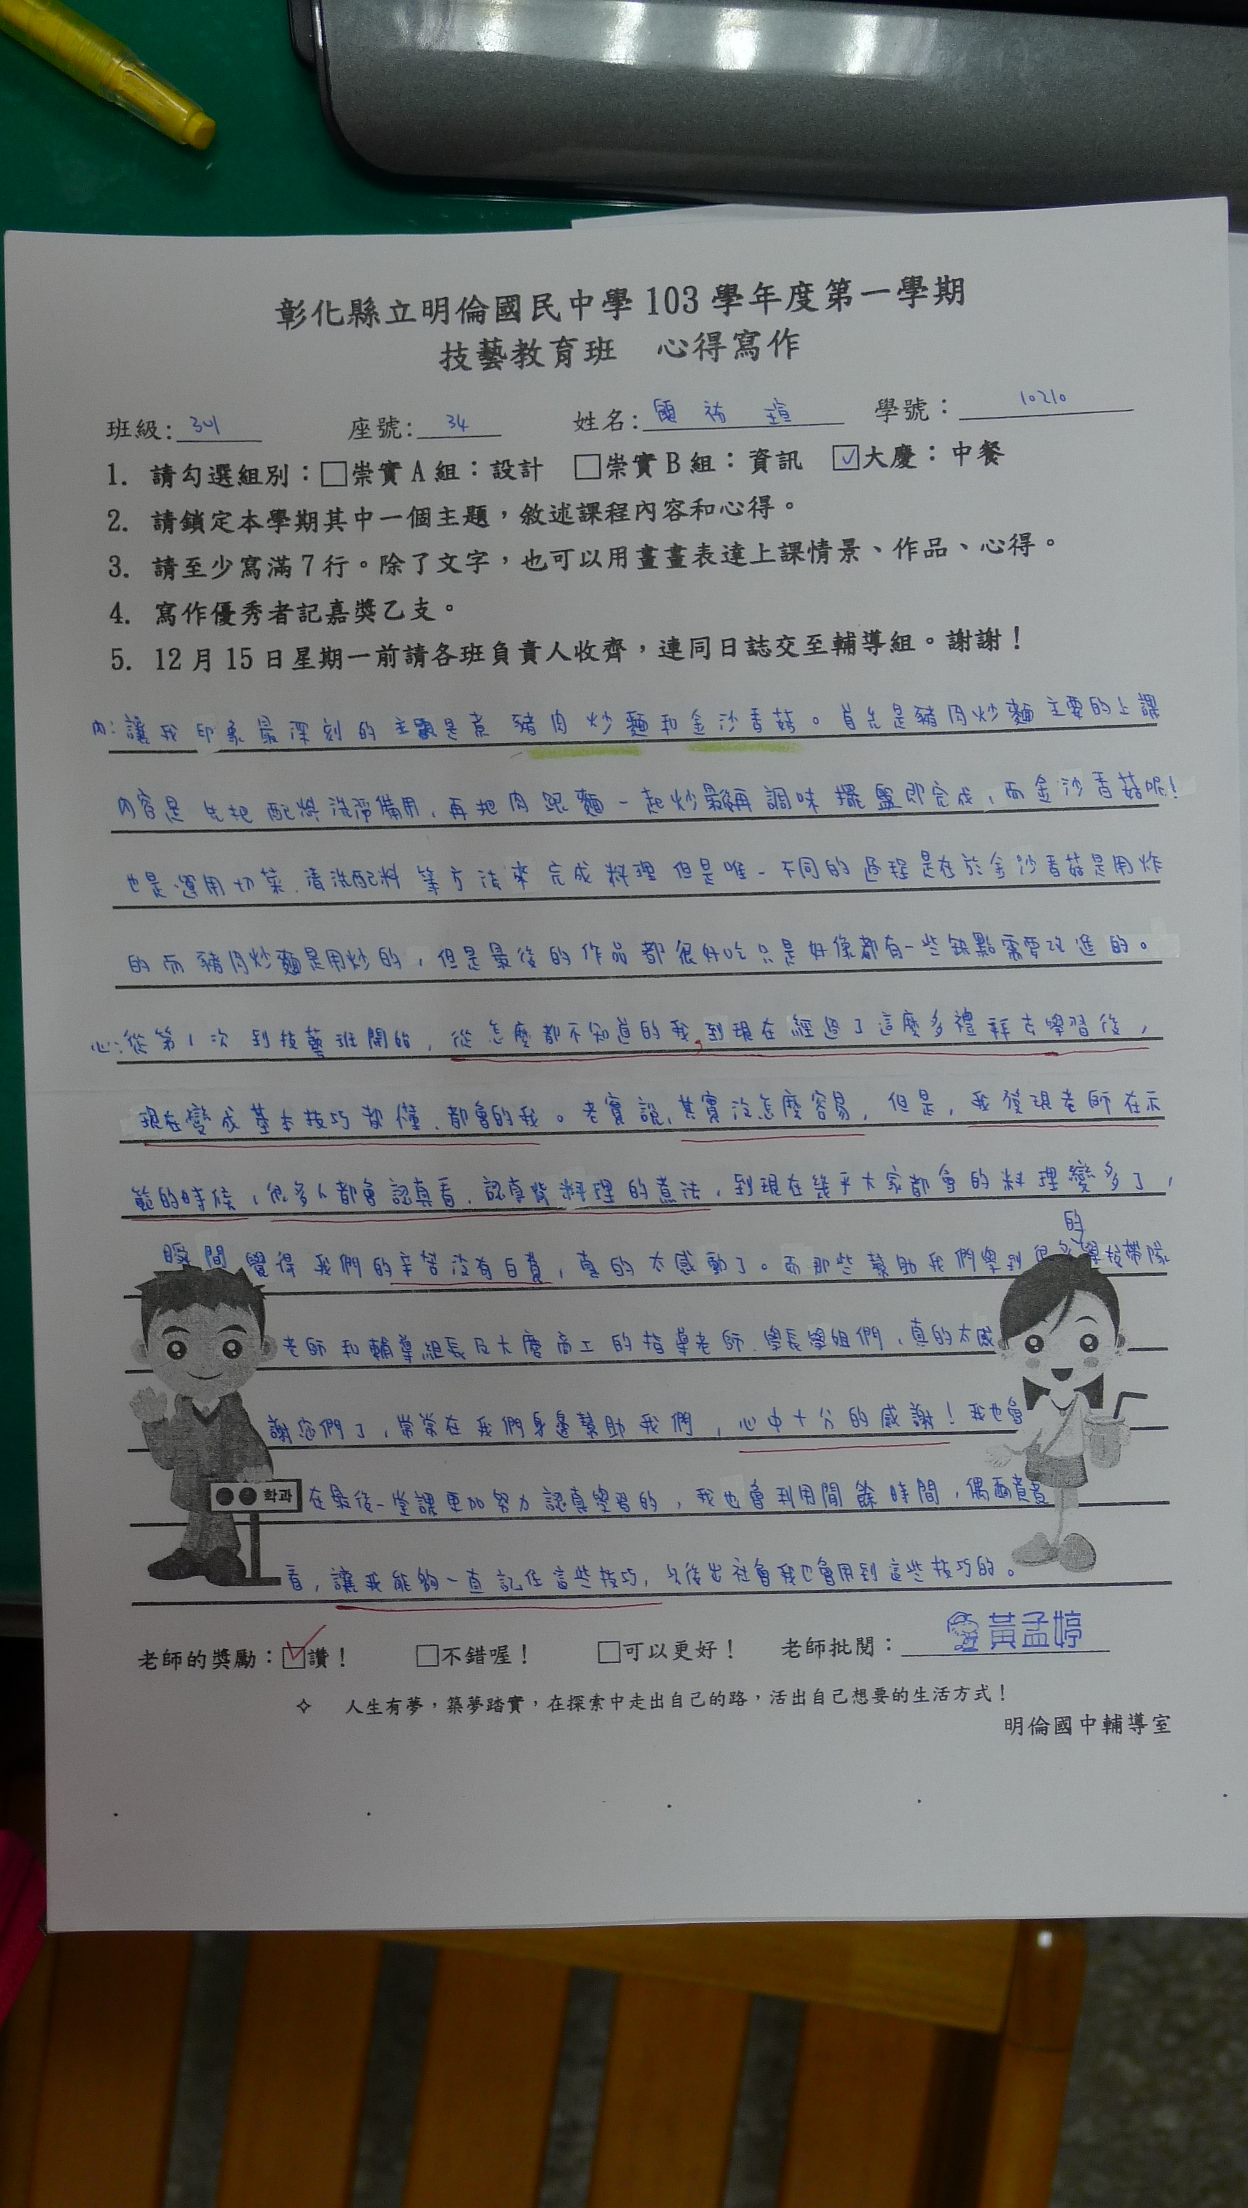 彰化縣立明倫國民中學 103 學年度第一學期
技藝教育班　心得寫作
班級: 座號:34 姓名: 祐 瑄 學號：10210
1. 請勾選組別：□崇實A組：設計 □崇實B組：資訊 ☑大慶：中餐
2. 請鎖定本學期其中一個主題，敘述課程內容和心得。
3. 請至少寫滿7行。除了文字，也可以用畫畫表達上課情景、作品、心得。
4. 寫作優秀者記嘉獎乙支。
5. 12月15日星期一前請各班負責人收齊，連同日誌交至輔導組。謝謝！
內:讓我印象最深刻的主題是煮 豬肉炒麵和金沙香菇。首先是豬肉炒麵主要的上課
內容是先把配料洗淨備用，再把肉跟麵一起炒最後再調味擺盤即完成，而金沙香菇呢!
也是運用切菜、清洗配料等方法來完成料理但是唯一不同的過程是在於金沙香菇是用炸
的而豬肉炒麵是用炒的，但是最後的作品都很好吃只是好像都有一些缺點需要改進的。
心:從第1次到技藝班開始，從怎麼都不知道的我,到現在經過了這麼多禮拜去學習後，
現在變成基本技巧都懂、都會的我。老實說，其實沒怎麼容易，但是，我發現老師在示
範的時候，很多人都會認真看、認真背料理的煮法，到現在幾乎大家都會的料理變多了，
瞬間覺得我們的辛苦沒有白費，真的太感動了。而那些幫助我們學到很多的學校帶隊
老師和輔導組長及大慶商工的指導老師、學長學姐們，真的太感
謝您們了，常常在我們身邊幫助我們，心中十分的感謝！我也會
在最後一堂課更加努力認真學習的，我也會利用閒餘時間，偶而煮煮
看，讓我能夠一直記住這些技巧，以後出社會我也會用到這些技巧的。
●●학과
老師的獎勵：☑讚！ □不錯喔！ □可以更好！ 老師批閱：黃孟婷
✧ 人生有夢，築夢踏實，在探索中走出自己的路，活出自己想要的生活方式！
明倫國中輔導室